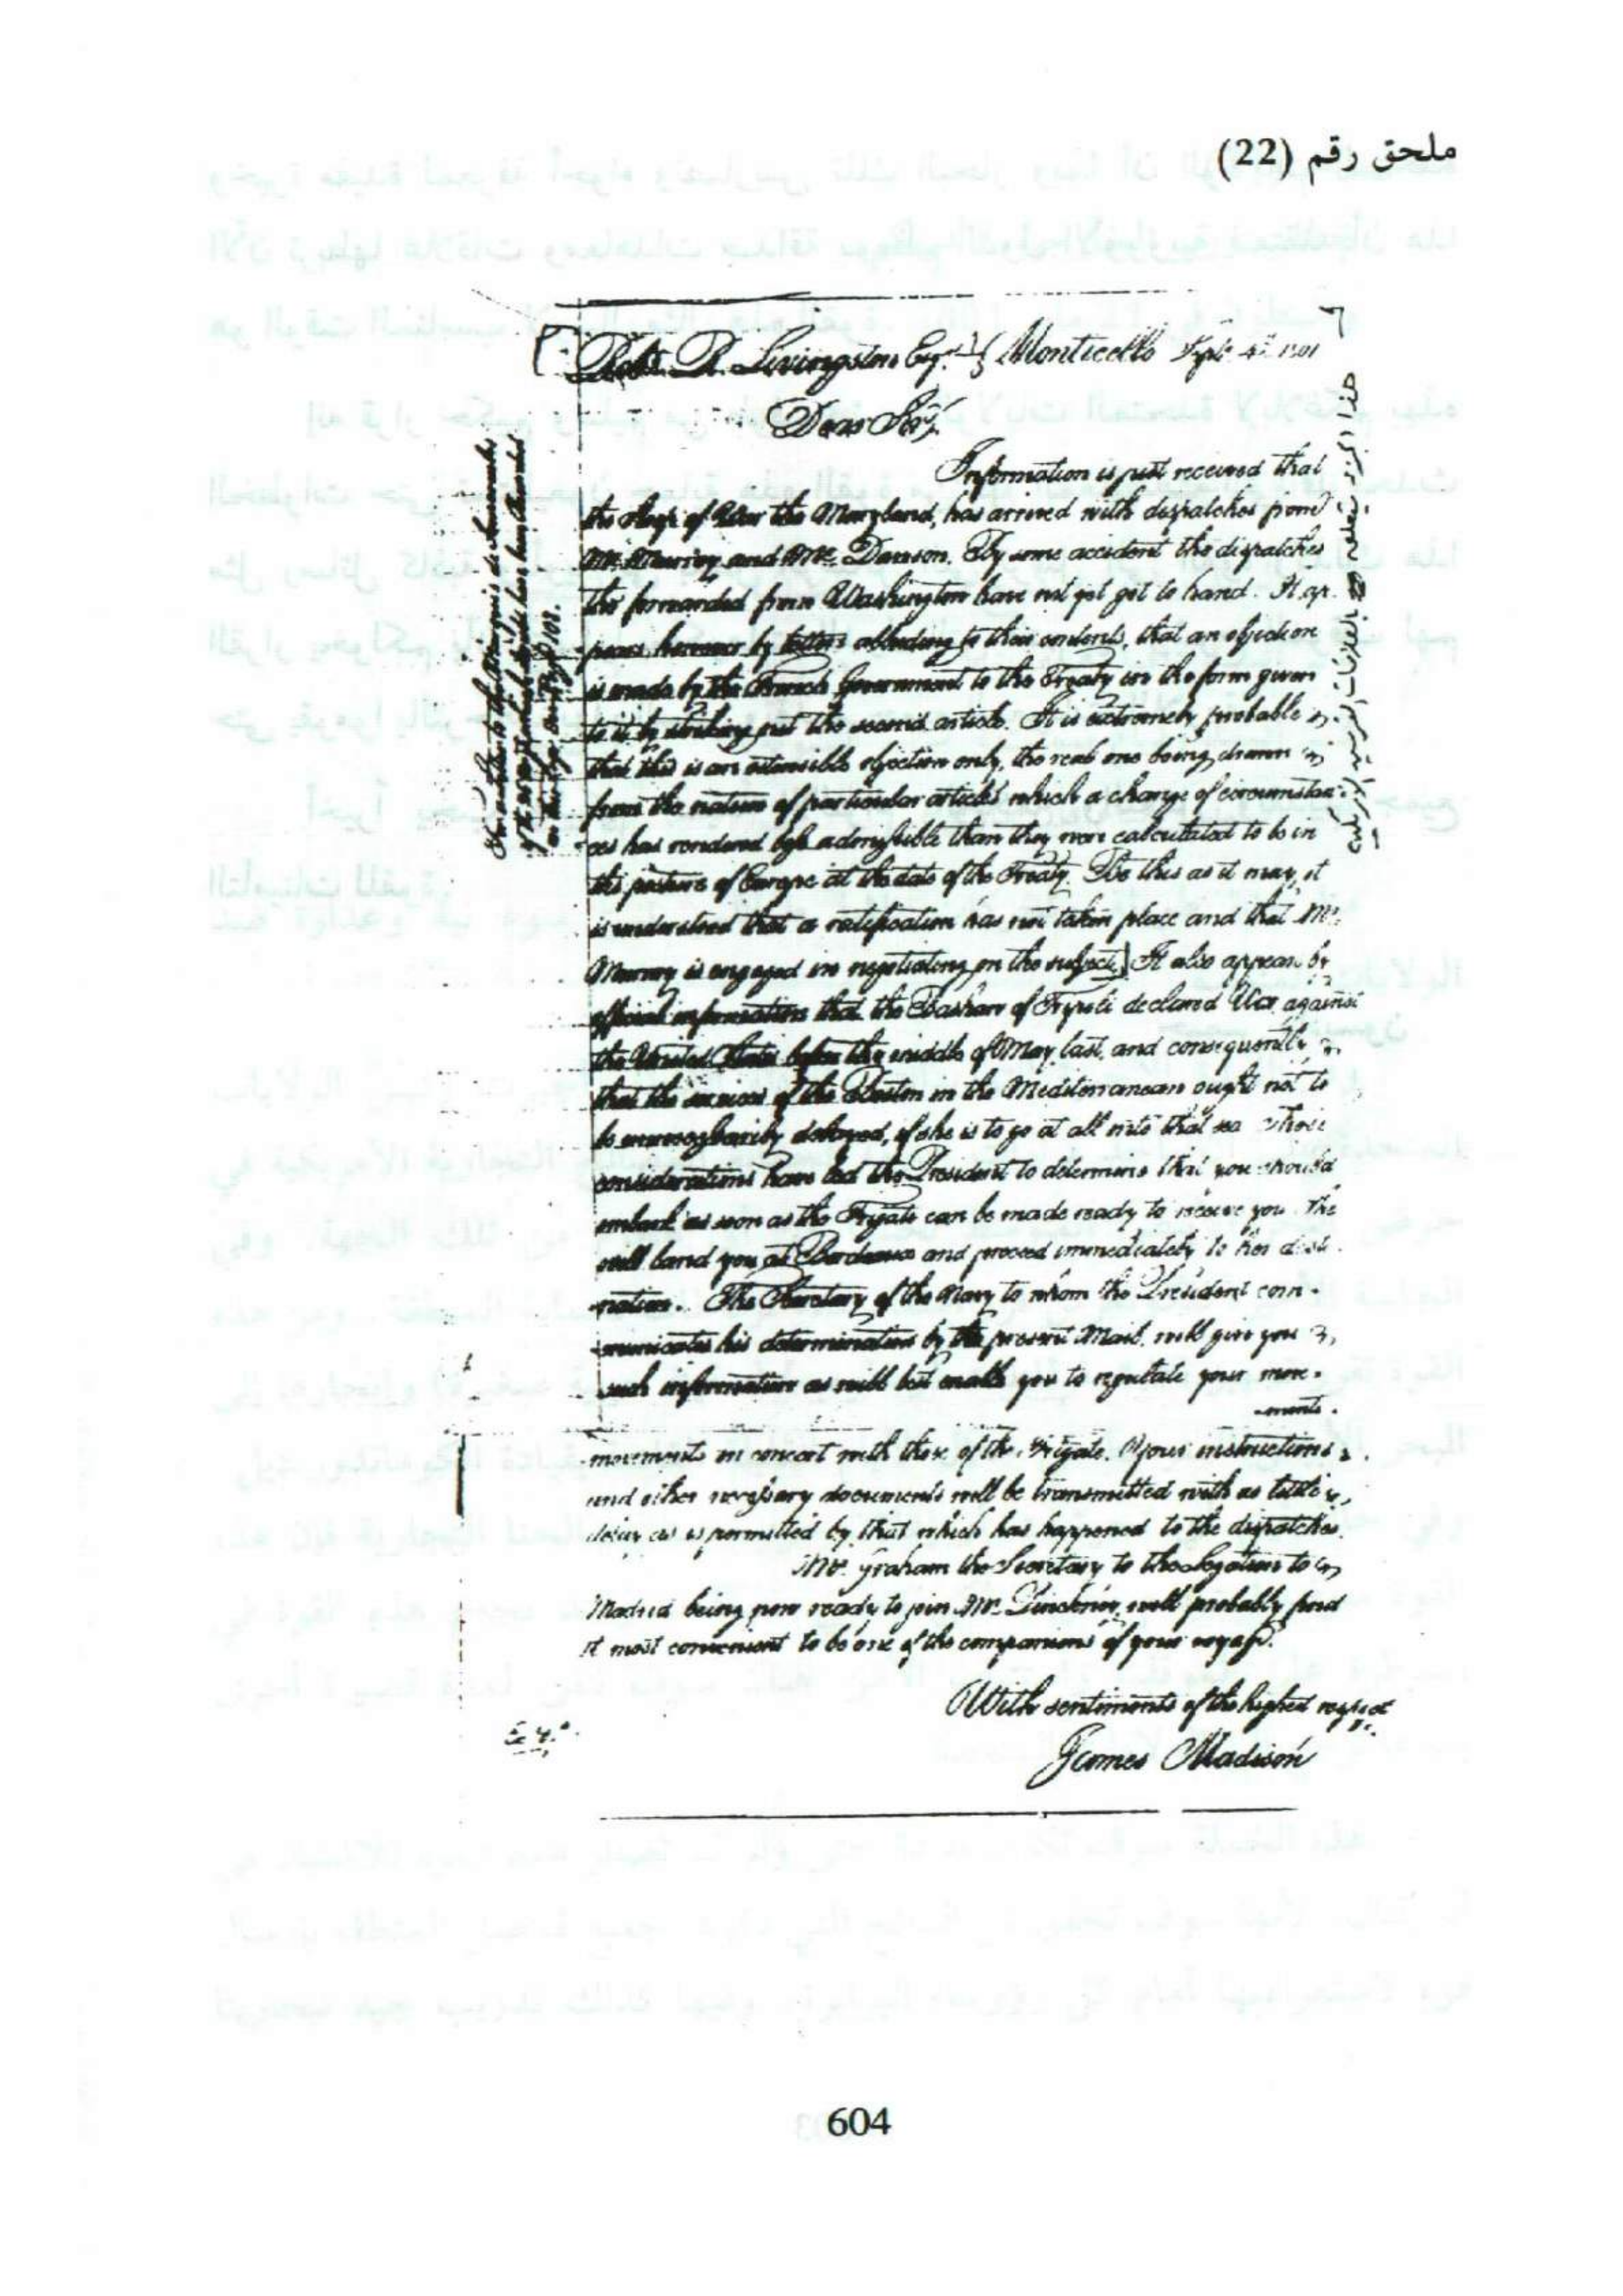 ملحق رقم (22)
Robt. R. Livingston Esqr. Monticello Septr. 4th 1801
Dear Sir,
Information is just received that
the Sloop of War the Maryland, has arrived with dispatches from
Mr. Murray and Mr. Dawson. By some accident the dispatches
tho' forwarded from Washington have not yet got to hand. It ap-
pears however by letters alluding to their contents, that an objection
is made by the French Government to the Treaty in the form given
to it by striking out the second article. It is extremely probable
that this is an ostensible objection only, the real one being drawn
from the nature of particular articles which a change of circumstan-
ces has rendered less admissible than they were calculated to be in
the posture of Europe at the date of the Treaty. Be this as it may, it
is understood that a ratification has not taken place and that Mr.
Murray is engaged in negotiating on the subject] It also appears by
official information that the Bashaw of Tripoli declared War against
the United States before the middle of May last, and consequently
that the services of the Boston in the Mediterranean ought not to
be unnecessarily delayed, if she is to go at all into that sea These
considerations have led the President to determine that you should
embark as soon as the Frigate can be made ready to receive you. She
will land you at Bordeaux and proceed immediately to her desti-
nation. The Secretary of the Navy to whom the President com-
municates his determination by the present Mail, will give you
such information as will best enable you to regulate your move-
-ments.
movements in concert with those of the Frigate. Your instructions
and other necessary documents will be transmitted with as little
delay as is permitted by that which has happened to the dispatches.
Mr. Graham the Secretary to the Legation to
Madrid being now ready to join Mr. Pinckney, will probably find
it most convenient to be one of the companions of your voyage.
With sentiments of the highest respect
James Madison
604